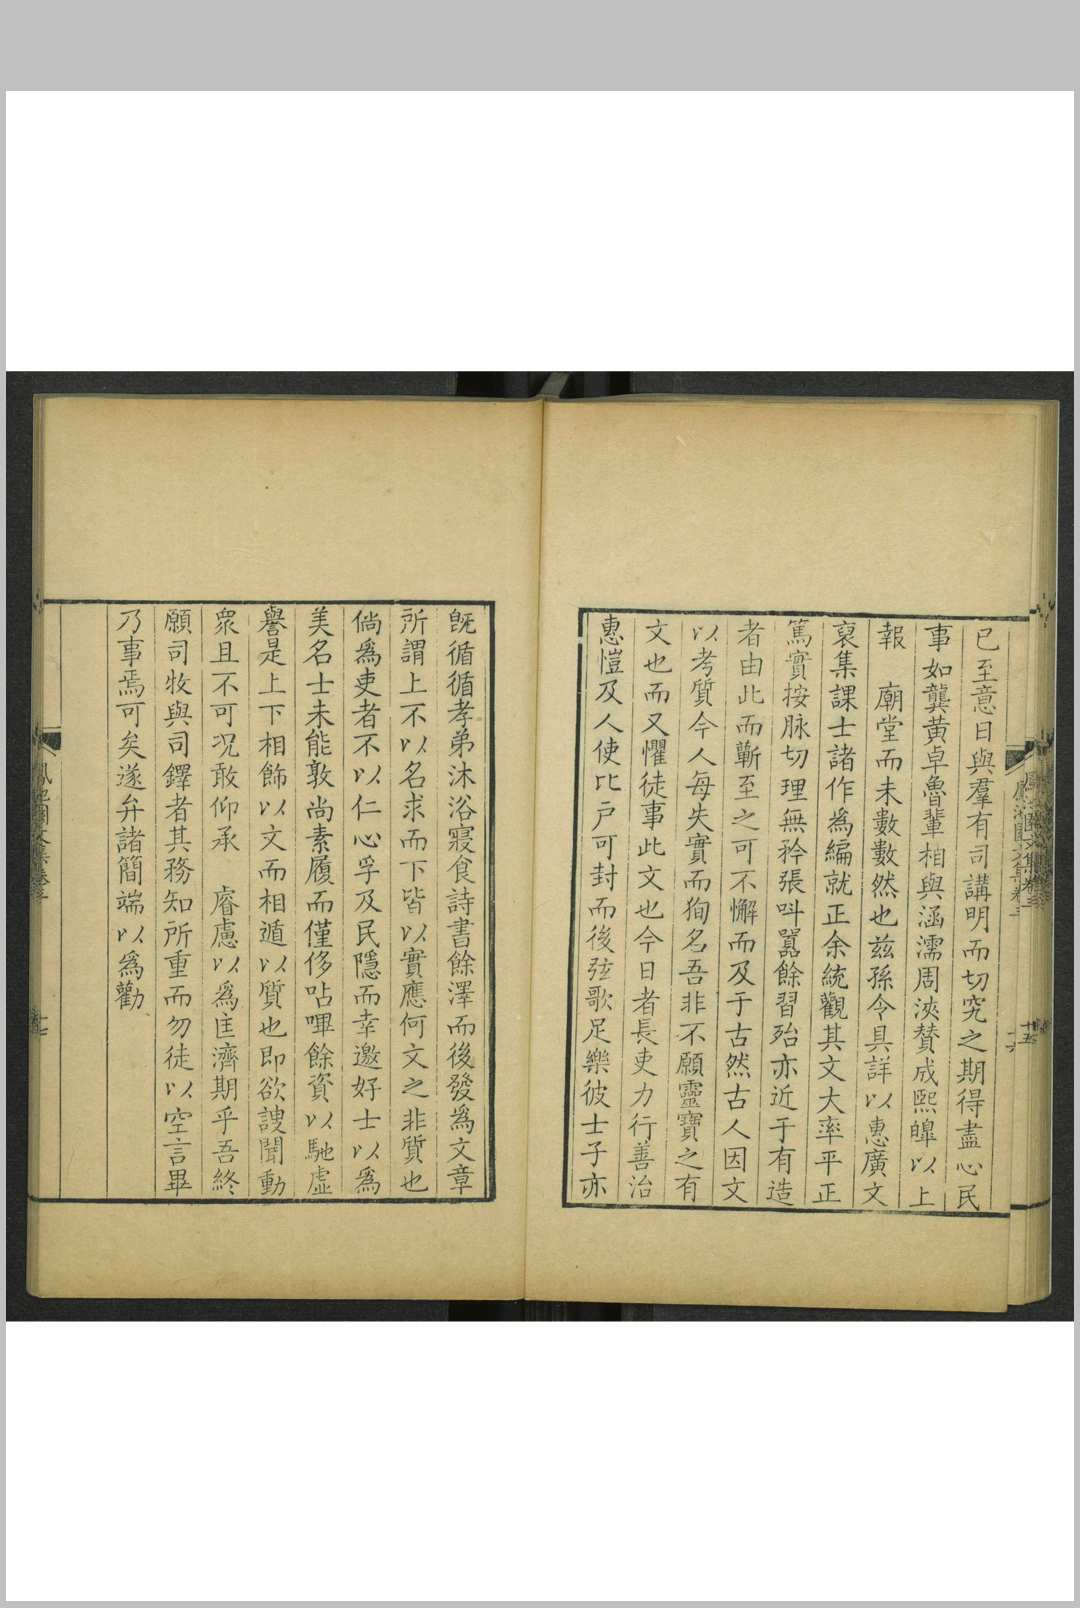 已至意日與羣有司講明而切究之期得盡心民
事如龔黃卓魯輩相與涵濡周浹賛成熙皥以上
報　廟堂而未數數然也兹孫令具詳以惠廣文
裒集課士諸作爲編就正余統觀其文大率平正
篤實按脉切理無矜張呌囂餘習殆亦近于有造
者由此而蘄至之可不懈而及于古然古人因文
以考質今人每失實而狥名吾非不願靈寶之有
文也而又懼徒事此文也今日者長吏力行善治
惠愷及人使比戸可封而後弦歌足樂彼士子亦
旣循循孝弟沐浴寢食詩書餘澤而後發爲文章
所謂上不以名求而下皆以實應何文之非質也
倘爲吏者不以仁心孚及民隱而幸邀好士以爲
美名士未能敦尚素履而僅侈呫嗶餘資以馳虛
譽是上下相飾以文而相遁以質也即欲謏聞動
衆且不可况敢仰承　睿慮以爲匡濟期乎吾終
願司牧與司鐸者其務知所重而勿徒以空言畢
乃事焉可矣遂弁諸簡端以爲勸